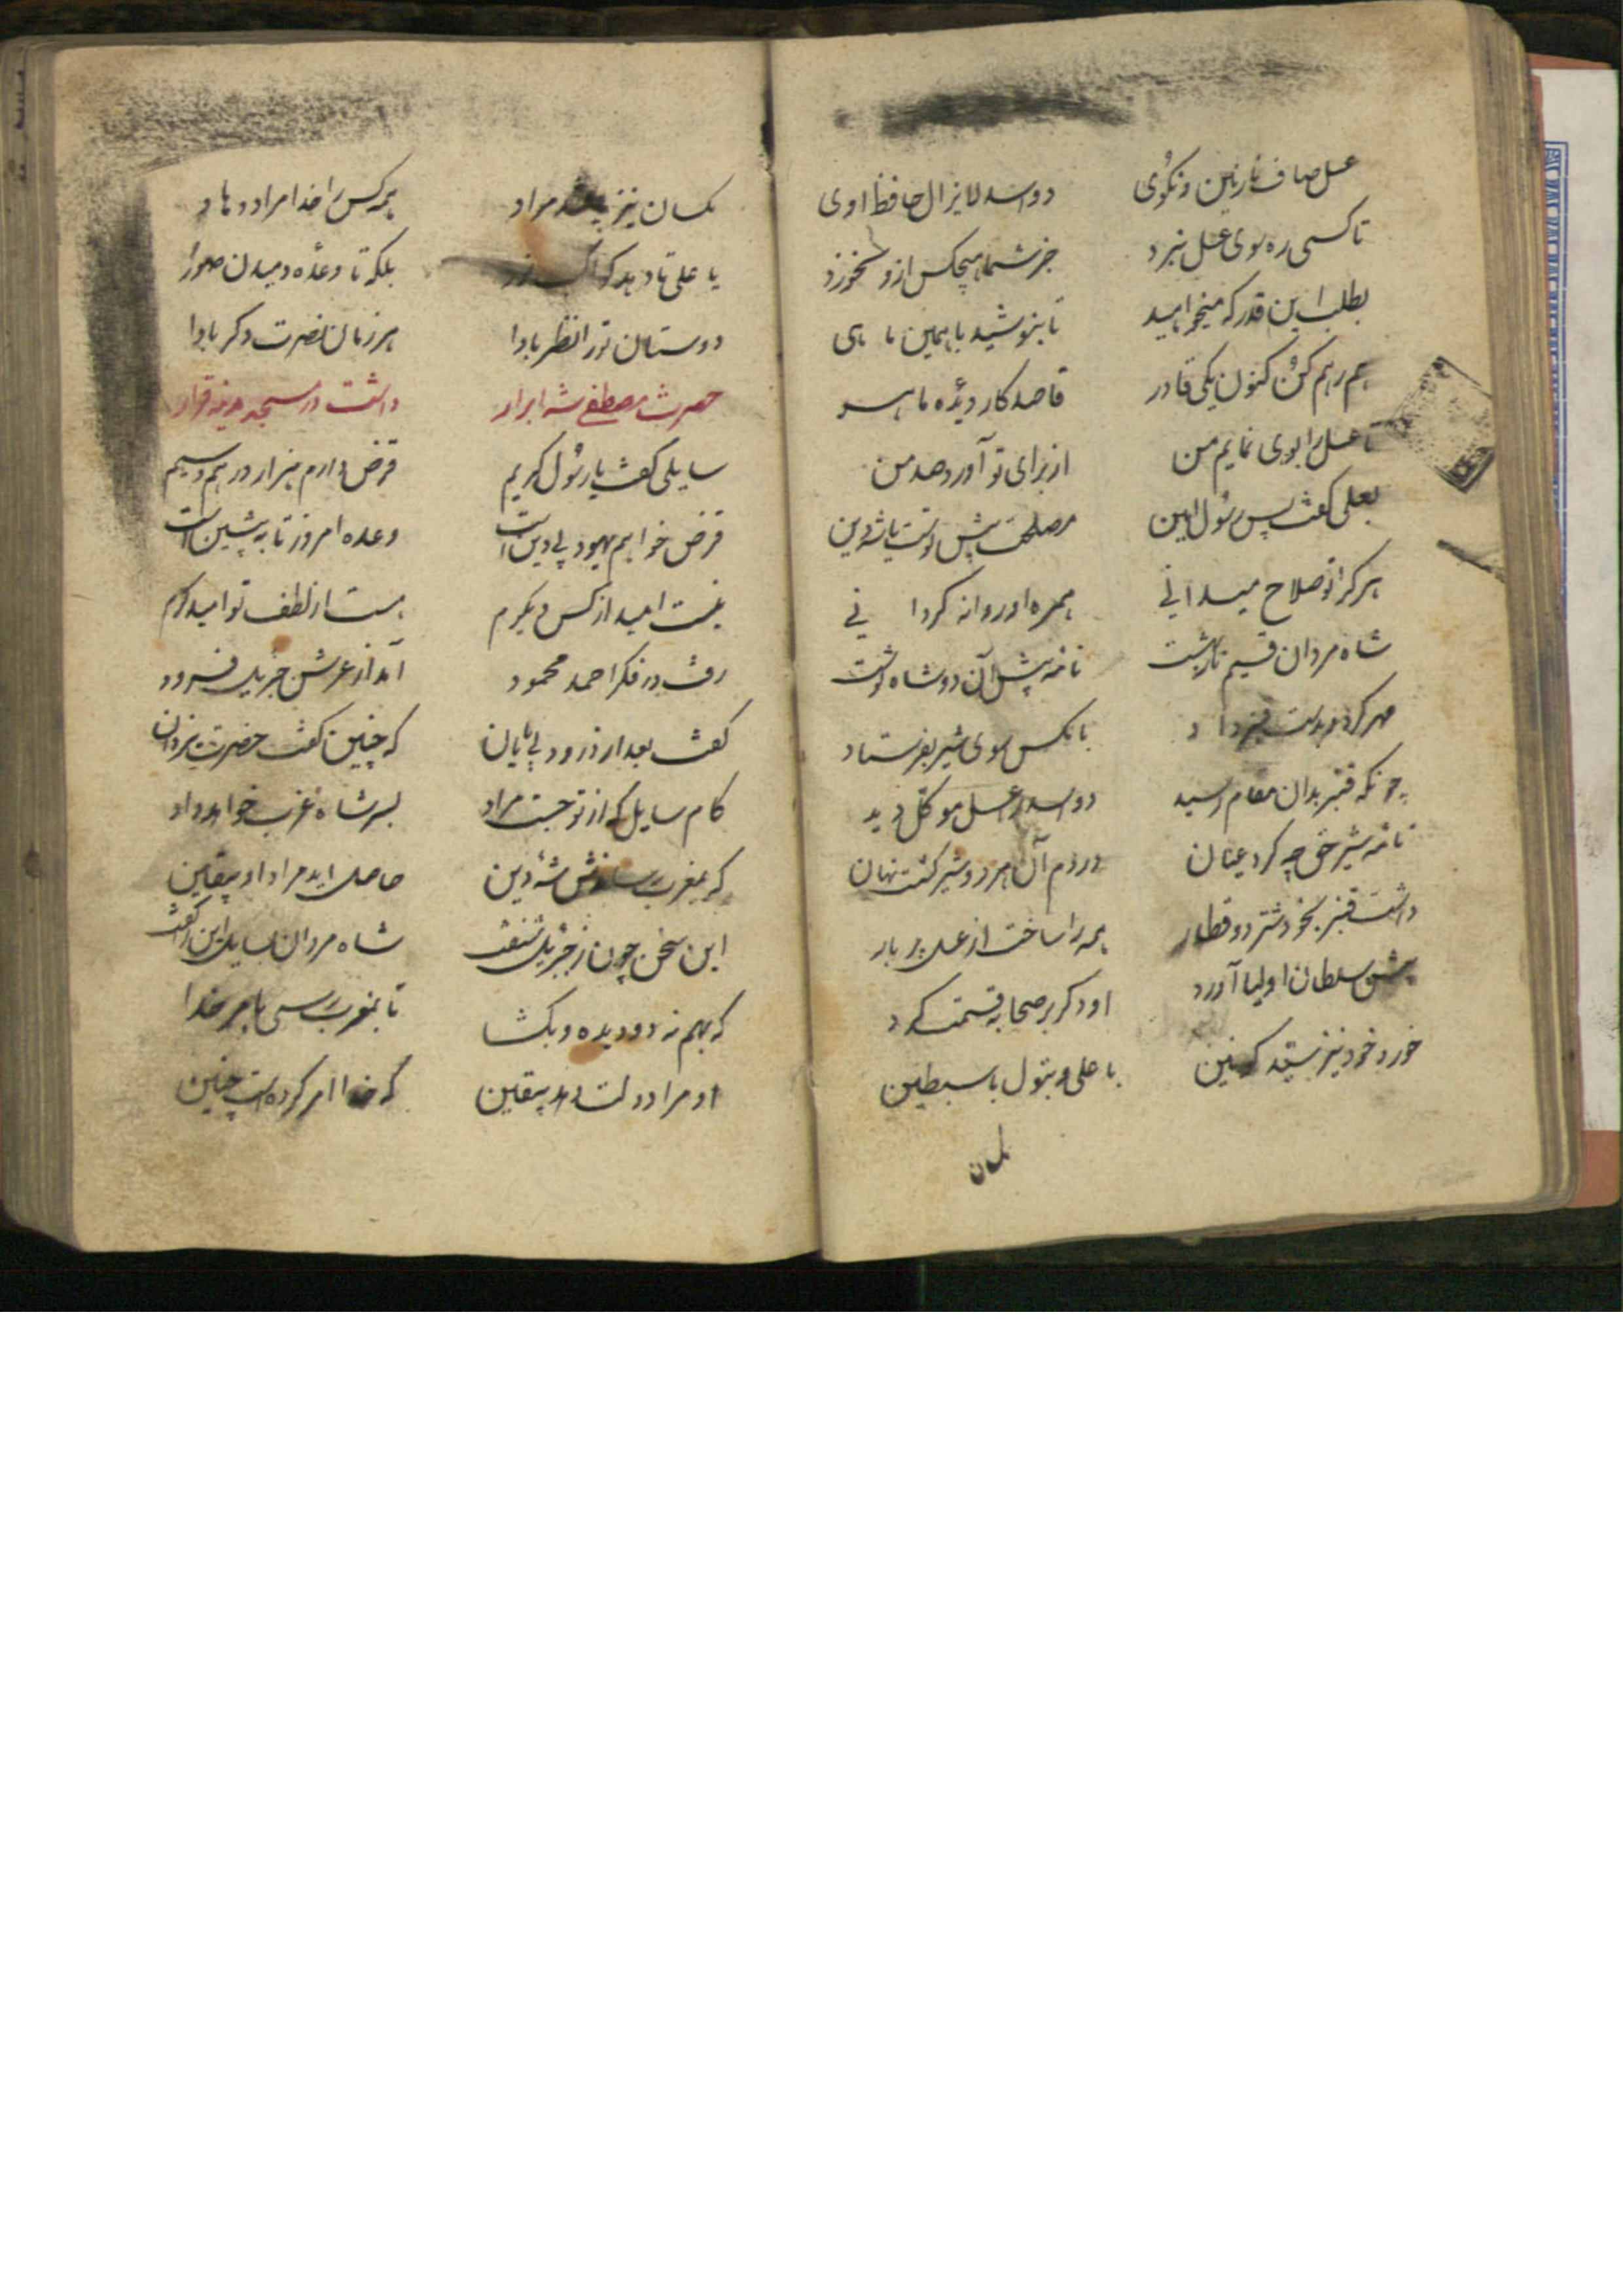 عسل صاف نازنین و نکوی دو اسد لایزال حافظ اوی
تا کسی ره سوی عسل نبرد جز شما هیچکس ازو نخورد
بطلب این قدر که میخواهید تا بنوشید با همین ما هی
هم رهم کن کنون یکی قادر قاصد کار دیده ماهر
تا عسل را بوی نمایم من از برای تو آورد من
بعلی گفت پس رسول امین مصلحت پیش تست یا شه دین
هر کرا تو صلاح میدانی همره او روانه گردانی
شاه مردان قسیم نار بهشت نامه پیش آن دو شاه نوشت
مهر کرد و بدست قنبر داد با نکس سوی شیر بفرستاد
چونکه قنبر بدان مقام رسید دو اسد را عسل موکل دید
نامه شیر حق چه کرد عیان در دم آن هر دو شیر گشت نهان
داشت قنبر بخود شتر دو قطار همه را ساخت از عسل پر بار
پیش سلطان اولیا آورد او دگر بر صحابه قسمت کرد
خورد خود نیز سید کونین با علی و بتول با سبطین
یکسان نیز مراد همه کس را خدا مراد دهاد
یا علی تا دهد که بلکه تا وعده دمیدن صور
دوستان ترا نظر بادا هر زمان نصرت دگر بادا
حضرت مصطفی شه ابرار داشت در مسجد مدینه قرار
سایلی گفت یا رسول کریم قرض دارم هزار درهم سیم
قرض خواهم یهود بی دین است وعده امروز تا به پیشین است
نیست امید از کس دیگرم هست از لطف تو امید کرم
رفت در فکر احمد محمود آمد از عرش جبریل فرود
گفت بعد از درود بی پایان که چنین گفت حضرت یزدان
کام سایل که از تو جست مراد پسر شاه غرب خواهد داد
که بمغرب رساندش شه دین حاصل اید مراد او بیقین
این سخن چون ز جبریل شنفت شاه مردان بسایل این را گفت
که بهم نه دو دیده و بگشا تا بمغرب رسی بامر خدا
او مرادت دهد بیقین که خدا امر کرده است چنین